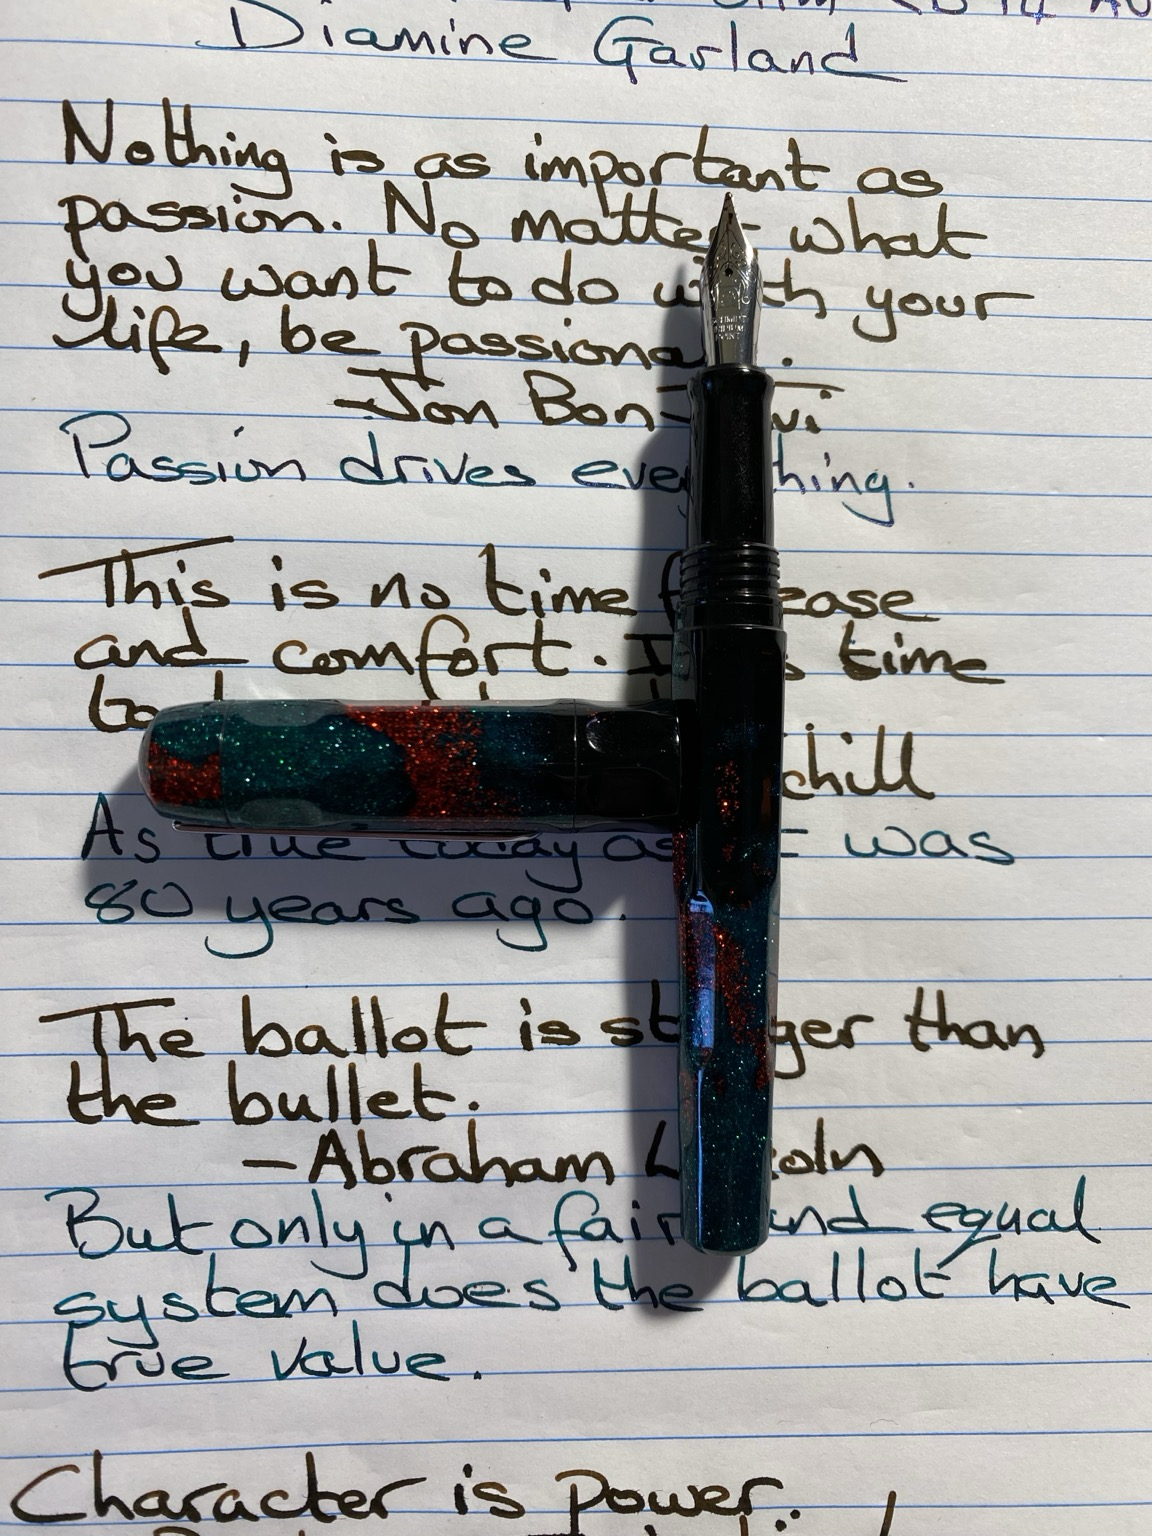 Diamine Garland
Nothing is as important as
passion. No matter what
you want to do with your
life, be passiona .
-Jon Bon vi
Passion drives eve thing.
This is no time ease
and comfort. I s time
to
chill
As true today as was
80 years ago.
The ballot is st ger than
the bullet.
-Abraham L coln
But only in a fair and equal
system does the ballot have
true value.
Character is power.